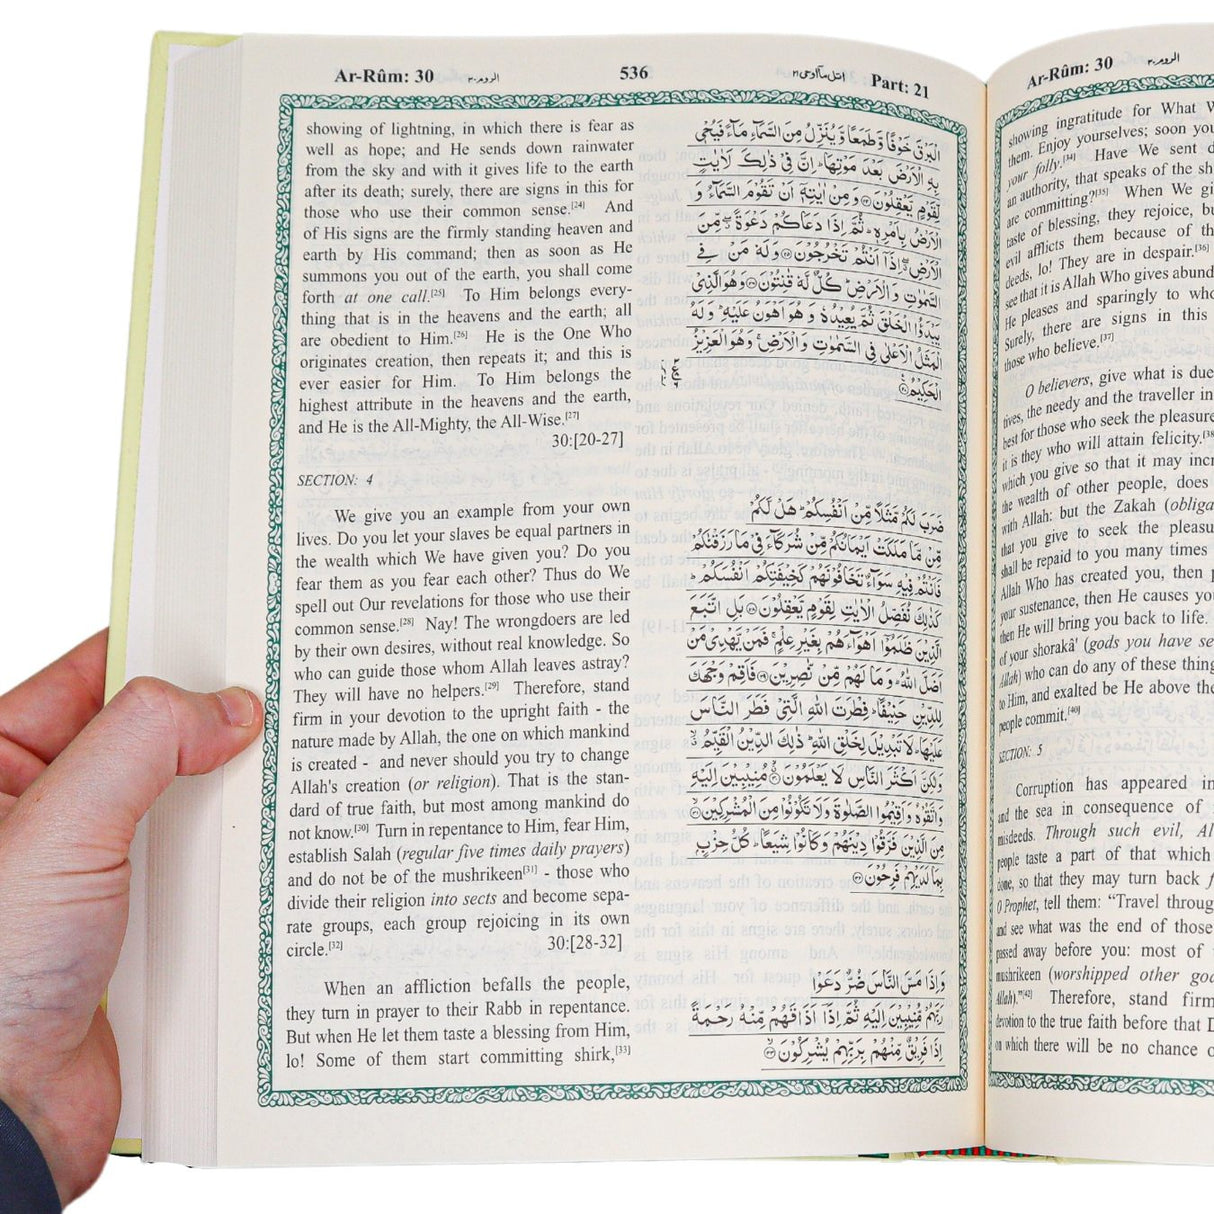 Ar-Rûm: 30
الروم ٣٠
536
اتل مآ اوحی ٢١
Part: 21
showing of lightning, in which there is fear as
well as hope; and He sends down rainwater
from the sky and with it gives life to the earth
after its death; surely, there are signs in this for
those who use their common sense.[24] And
of His signs are the firmly standing heaven and
earth by His command; then as soon as He
summons you out of the earth, you shall come
forth at one call.[25] To Him belongs every-
thing that is in the heavens and the earth; all
are obedient to Him.[26] He is the One Who
originates creation, then repeats it; and this is
ever easier for Him. To Him belongs the
highest attribute in the heavens and the earth,
and He is the All-Mighty, the All-Wise.[27]
30:[20-27]
SECTION: 4
We give you an example from your own
lives. Do you let your slaves be equal partners in
the wealth which We have given you? Do you
fear them as you fear each other? Thus do We
spell out Our revelations for those who use their
common sense.[28] Nay! The wrongdoers are led
by their own desires, without real knowledge. So
who can guide those whom Allah leaves astray?
They will have no helpers.[29] Therefore, stand
firm in your devotion to the upright faith - the
nature made by Allah, the one on which mankind
is created - and never should you try to change
Allah's creation (or religion). That is the stan-
dard of true faith, but most among mankind do
not know.[30] Turn in repentance to Him, fear Him,
establish Salah (regular five times daily prayers)
and do not be of the mushrikeen[31] - those who
divide their religion into sects and become sepa-
rate groups, each group rejoicing in its own
circle.[32] 30:[28-32]
When an affliction befalls the people,
they turn in prayer to their Rabb in repentance.
But when He let them taste a blessing from Him,
lo! Some of them start committing shirk,[33]
الْبَرْقَ خَوْفًا وَّطَمَعًا وَّيُنَزِّلُ مِنَ السَّمَآءِ مَآءً فَيُحْيٖ
بِهِ الْاَرْضَ بَعْدَ مَوْتِهَا ؕ اِنَّ فِيْ ذٰلِكَ لَاٰيٰتٍ
لِّقَوْمٍ يَّعْقِلُوْنَ ﴿٢٤﴾ وَمِنْ اٰيٰتِهٖۤ اَنْ تَقُوْمَ السَّمَآءُ وَ
الْاَرْضُ بِاَمْرِهٖ ؕ ثُمَّ اِذَا دَعَاكُمْ دَعْوَةً ۖ مِّنَ
الْاَرْضِ ۖ اِذَاۤ اَنْتُمْ تَخْرُجُوْنَ ﴿٢٥﴾ وَلَهٗ مَنْ فِي
السَّمٰوٰتِ وَالْاَرْضِ ؕ كُلٌّ لَّهٗ قٰنِتُوْنَ ﴿٢٦﴾ وَهُوَ الَّذِيْ
يَبْدَؤُا الْخَلْقَ ثُمَّ يُعِيْدُهٗ وَهُوَ اَهْوَنُ عَلَيْهِ ؕ وَلَهُ
الْمَثَلُ الْاَعْلٰى فِي السَّمٰوٰتِ وَالْاَرْضِ ۚ وَهُوَ الْعَزِيْزُ
الْحَكِيْمُ ﴿٢٧﴾
ضَرَبَ لَكُمْ مَّثَلًا مِّنْ اَنْفُسِكُمْ ؕ هَلْ لَّكُمْ
مِّنْ مَّا مَلَكَتْ اَيْمَانُكُمْ مِّنْ شُرَكَآءَ فِيْ مَا رَزَقْنٰكُمْ
فَاَنْتُمْ فِيْهِ سَوَآءٌ تَخَافُوْنَهُمْ كَخِيْفَتِكُمْ اَنْفُسَكُمْ ؕ
كَذٰلِكَ نُفَصِّلُ الْاٰيٰتِ لِقَوْمٍ يَّعْقِلُوْنَ ﴿٢٨﴾ بَلِ اتَّبَعَ
الَّذِيْنَ ظَلَمُوْۤا اَهْوَآءَهُمْ بِغَيْرِ عِلْمٍ ۚ فَمَنْ يَّهْدِيْ مَنْ
اَضَلَّ اللّٰهُ ؕ وَمَا لَهُمْ مِّنْ نّٰصِرِيْنَ ﴿٢٩﴾ فَاَقِمْ وَجْهَكَ
لِلدِّيْنِ حَنِيْفًا ؕ فِطْرَتَ اللّٰهِ الَّتِيْ فَطَرَ النَّاسَ
عَلَيْهَا ؕ لَا تَبْدِيْلَ لِخَلْقِ اللّٰهِ ؕ ذٰلِكَ الدِّيْنُ الْقَيِّمُ ۙ
وَلٰكِنَّ اَكْثَرَ النَّاسِ لَا يَعْلَمُوْنَ ﴿٣٠﴾ مُنِيْبِيْنَ اِلَيْهِ
وَاتَّقُوْهُ وَاَقِيْمُوا الصَّلٰوةَ وَلَا تَكُوْنُوْا مِنَ الْمُشْرِكِيْنَ ﴿٣١﴾
مِنَ الَّذِيْنَ فَرَّقُوْا دِيْنَهُمْ وَكَانُوْا شِيَعًا ؕ كُلُّ حِزْبٍۭ
بِمَا لَدَيْهِمْ فَرِحُوْنَ ﴿٣٢﴾
وَاِذَا مَسَّ النَّاسَ ضُرٌّ دَعَوْا
رَبَّهُمْ مُّنِيْبِيْنَ اِلَيْهِ ثُمَّ اِذَاۤ اَذَاقَهُمْ مِّنْهُ رَحْمَةً
اِذَا فَرِيْقٌ مِّنْهُمْ بِرَبِّهِمْ يُشْرِكُوْنَ ﴿٣٣﴾
Ar-Rûm: 30
الروم ٣٠
showing ingratitude for What W
them. Enjoy yourselves; soon you
your folly.[34] Have We sent d
an authority, that speaks of the sh
are committing?[35] When We gi
taste of blessing, they rejoice, bu
evil afflicts them because of th
deeds, lo! They are in despair.[36]
see that it is Allah Who gives abund
He pleases and sparingly to who
Surely, there are signs in this
those who believe.[37]
O believers, give what is due
tives, the needy and the traveller in
best for those who seek the pleasure
it is they who will attain felicity.[38
which you give so that it may incr
the wealth of other people, does
with Allah: but the Zakah (obliga
that you give to seek the pleasu
shall be repaid to you many times
Allah Who has created you, then p
your sustenance, then He causes yo
then He will bring you back to life.
of your shorakâ' (gods you have se
Allah) who can do any of these thing
to Him, and exalted be He above the
people commit.[40]
SECTION: 5
Corruption has appeared in
and the sea in consequence of
misdeeds. Through such evil, Al
people taste a part of that which
done, so that they may turn back f
O Prophet, tell them: “Travel throug
and see what was the end of those
passed away before you: most of
mushrikeen (worshipped other god
Allah).”[42] Therefore, stand firm
devotion to the true faith before that D
on which there will be no chance o